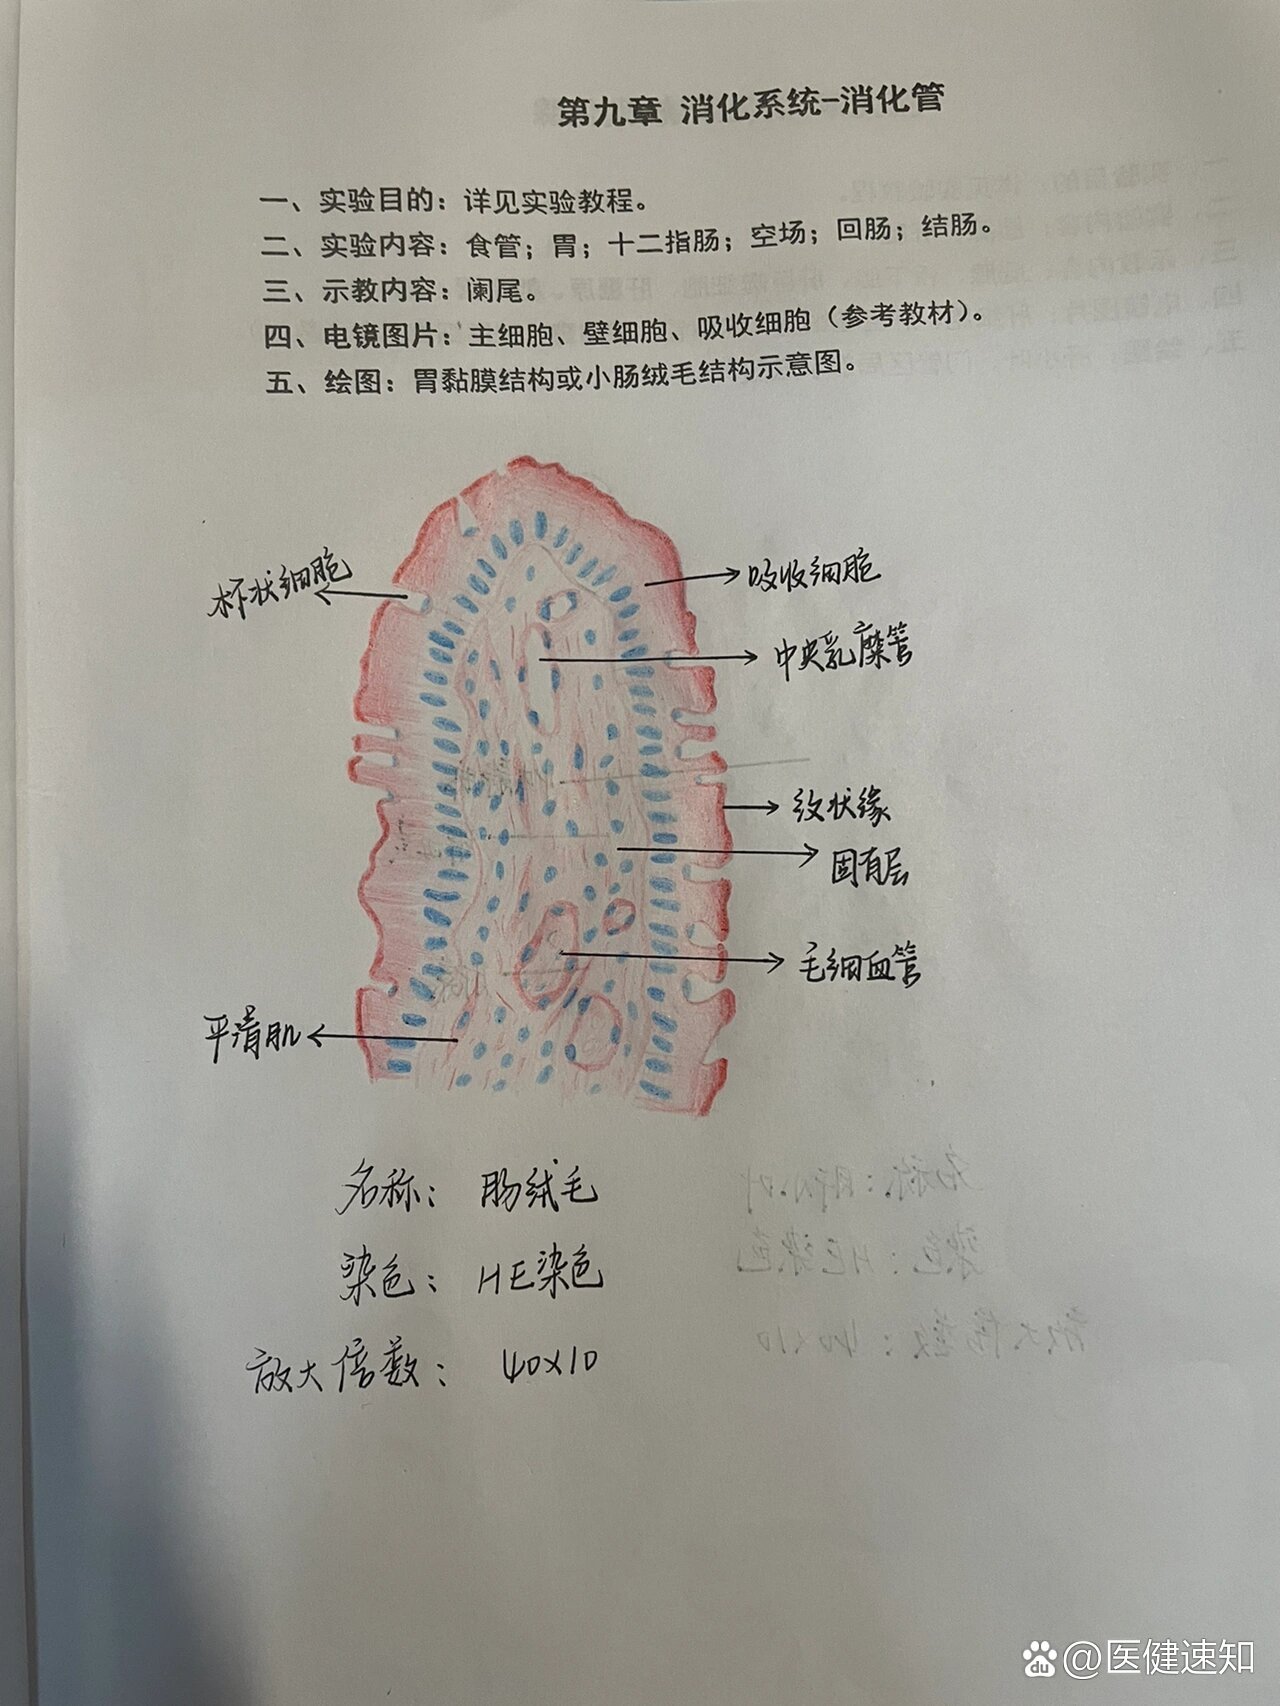 第九章 消化系统-消化管
一、实验目的：详见实验教程。
二、实验内容：食管；胃；十二指肠；空场；回肠；结肠。
三、示教内容：阑尾。
四、电镜图片：主细胞、壁细胞、吸收细胞（参考教材）。
五、绘图：胃黏膜结构或小肠绒毛结构示意图。
杯状细胞
吸收细胞
中央乳糜管
纹状缘
固有层
毛细血管
平滑肌
名称： 肠绒毛
染色： HE染色
放大倍数： 40×10
du @医健速知